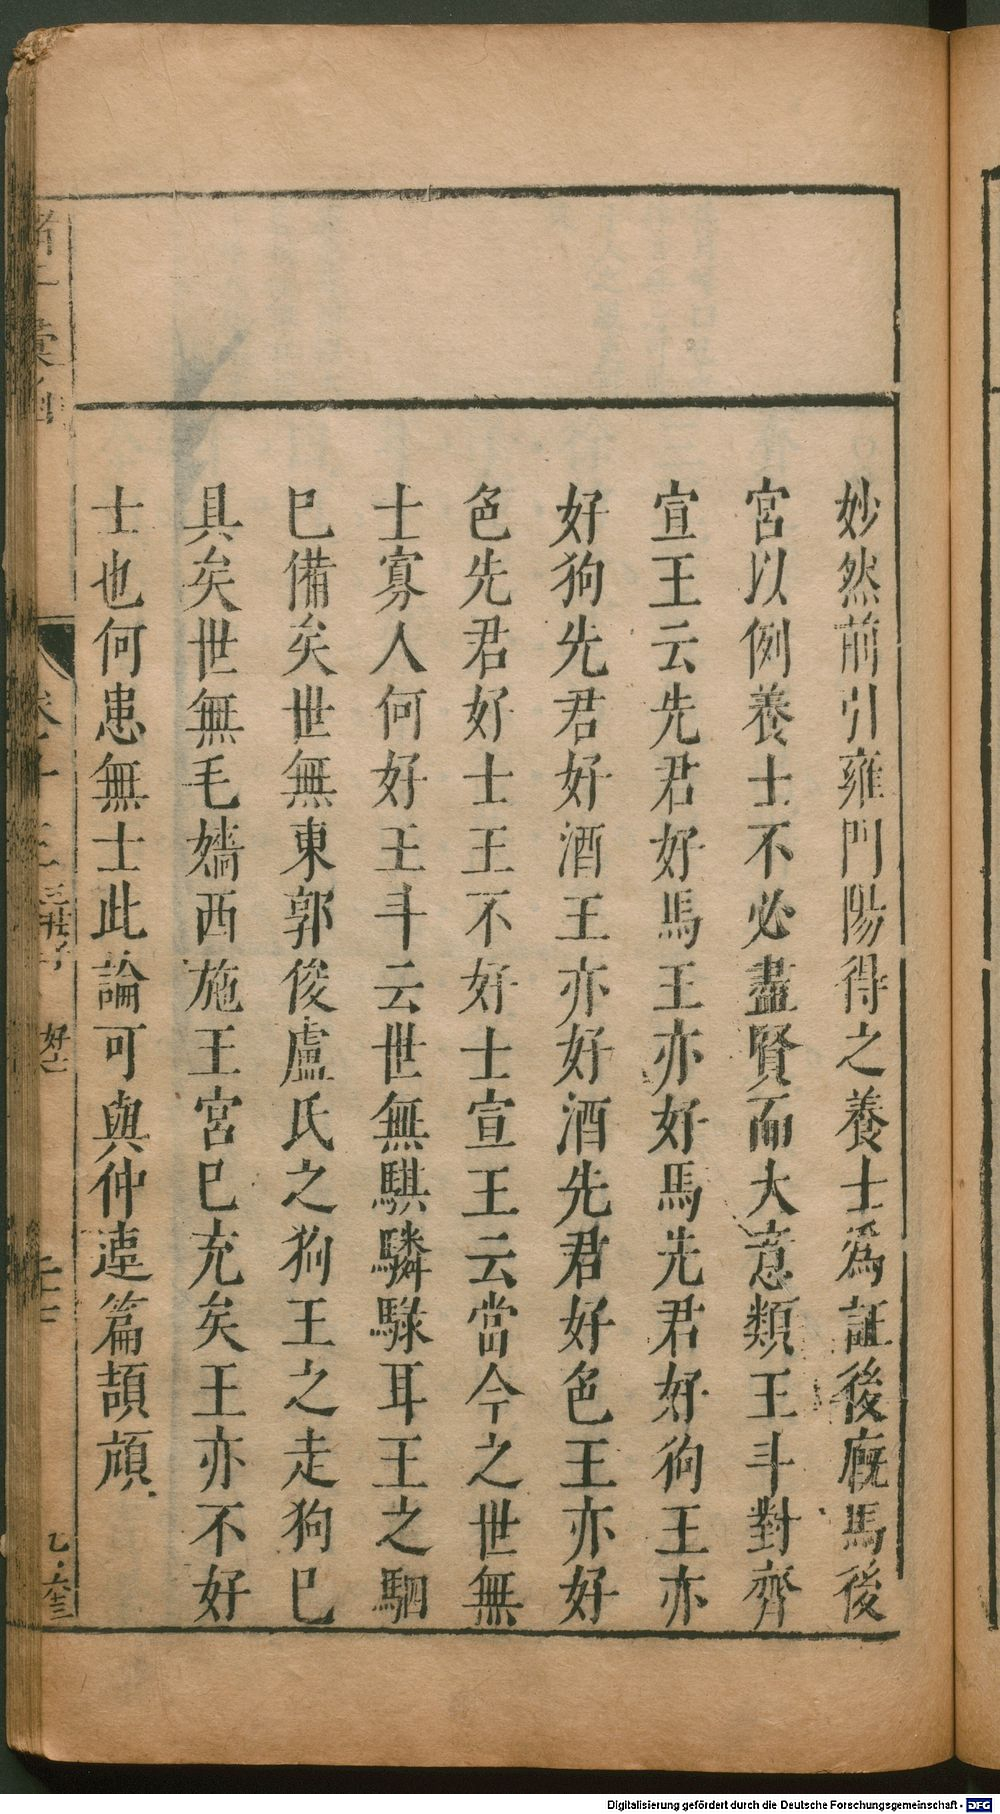 妙然前引雍門陽得之養士為証後廐馬後
宮以例養士不必盡賢而大意類王斗對齊
宣王云先君好馬王亦好馬先君好狗王亦
好狗先君好酒王亦好酒先君好色王亦好
色先君好士王不好士宣王云當今之世無
士寡人何好王斗云世無騏驎騄耳王之駟
巳備矣世無東郭俊盧氏之狗王之走狗巳
具矣世無毛嬙西施王宮巳充矣王亦不好
士也何患無士此論可與仲連篇頡頏
Digitalisierung gefördert durch die Deutsche Forschungsgemeinschaft - DFG